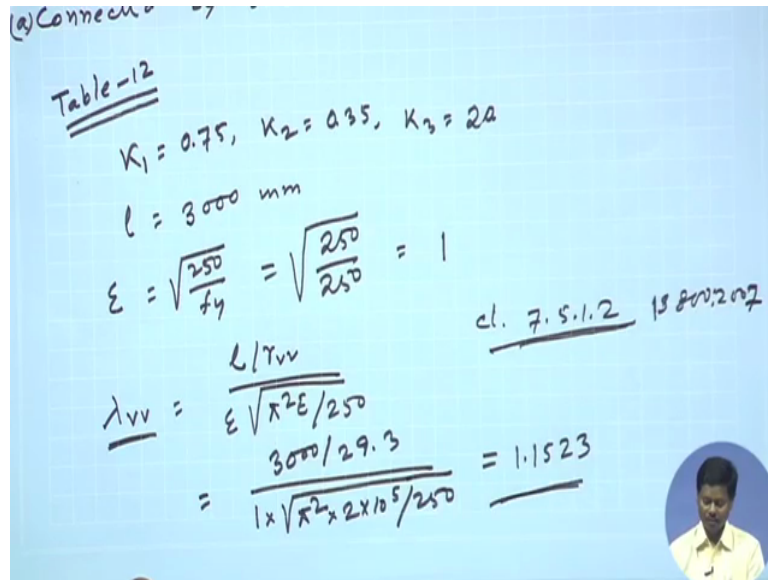 (a) Connect
Table-12
K₁ = 0.75, K₂ = 0.35, K₃ = 20
l = 3000 mm
ε = √(250/fy) = √(250/250) = 1
cl. 7.5.1.2 IS 800:2007
λvv = (l/rvv) / (ε √(π²E/250))
= (3000/29.3) / (1×√(π²×2×10⁵/250)) = 1.1523